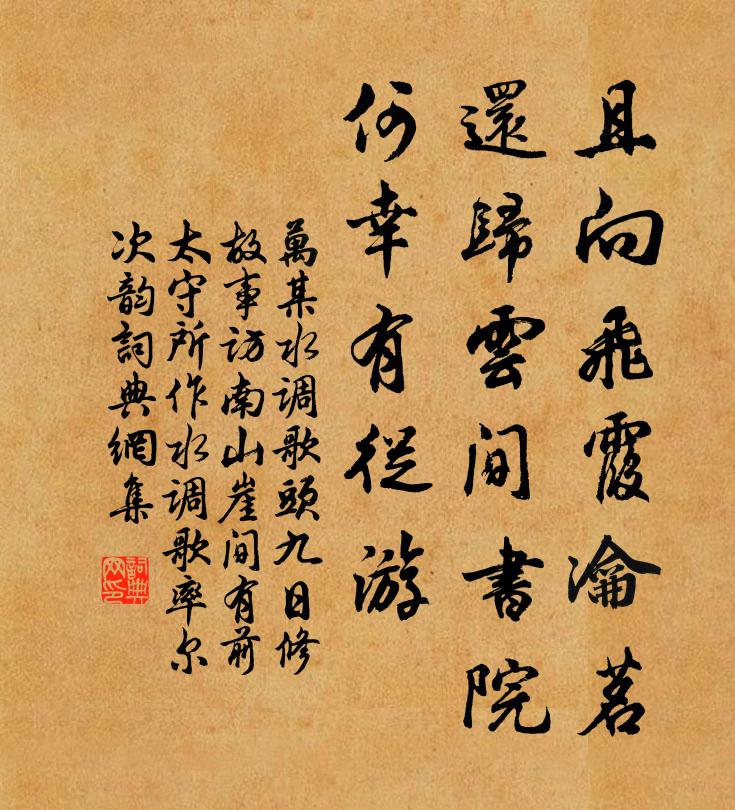 且向飛霞瀹茗
還歸雲間書院
何幸有從游
萬某水调歌頭九日修
故事访南山崖间有前
太守所作水调歌率尔
次韵詞典網集
詞典網印